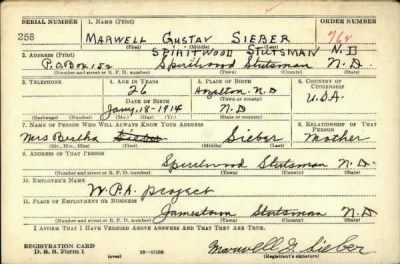 SERIAL NUMBER 1. NAME (Print) ORDER NUMBER
258 MARWELL GUSTAV SIEBER 764
(First) (Middle) (Last)
SPIRITWOOD STUTSMAN N.D
2. ADDRESS (Print)
P.O Box 152 Spiritwood Stutsman N.D.
(Number and street or R. F. D. number) (Town) (County) (State)
3. TELEPHONE 4. AGE IN YEARS 5. PLACE OF BIRTH 6. COUNTRY OF CITIZENSHIP
26 Hazelton, N.D
(Town or county)
DATE OF BIRTH U.S.A.
Jany, 18-1914 N.D
(Exchange) (Number) (Mo.) (Day) (Yr.) (State or country)
7. NAME OF PERSON WHO WILL ALWAYS KNOW YOUR ADDRESS 8. RELATIONSHIP OF THAT PERSON
Mrs Bertha Sieber Sieber Mother
(Mr., Mrs., Miss) (First) (Middle) (Last)
9. ADDRESS OF THAT PERSON
Spiritwood Stutsman N.D.
(Number and street or R. F. D. number) (Town) (County) (State)
10. EMPLOYER'S NAME
W.P.A. project
11. PLACE OF EMPLOYMENT OR BUSINESS
Jamestown Stutsman N.D
(Number and street or R. F. D. number) (Town) (County) (State)
I AFFIRM THAT I HAVE VERIFIED ABOVE ANSWERS AND THAT THEY ARE TRUE.
REGISTRATION CARD
D. S. S. Form 1 (over) Marwell G. Sieber
(Registrant's signature)